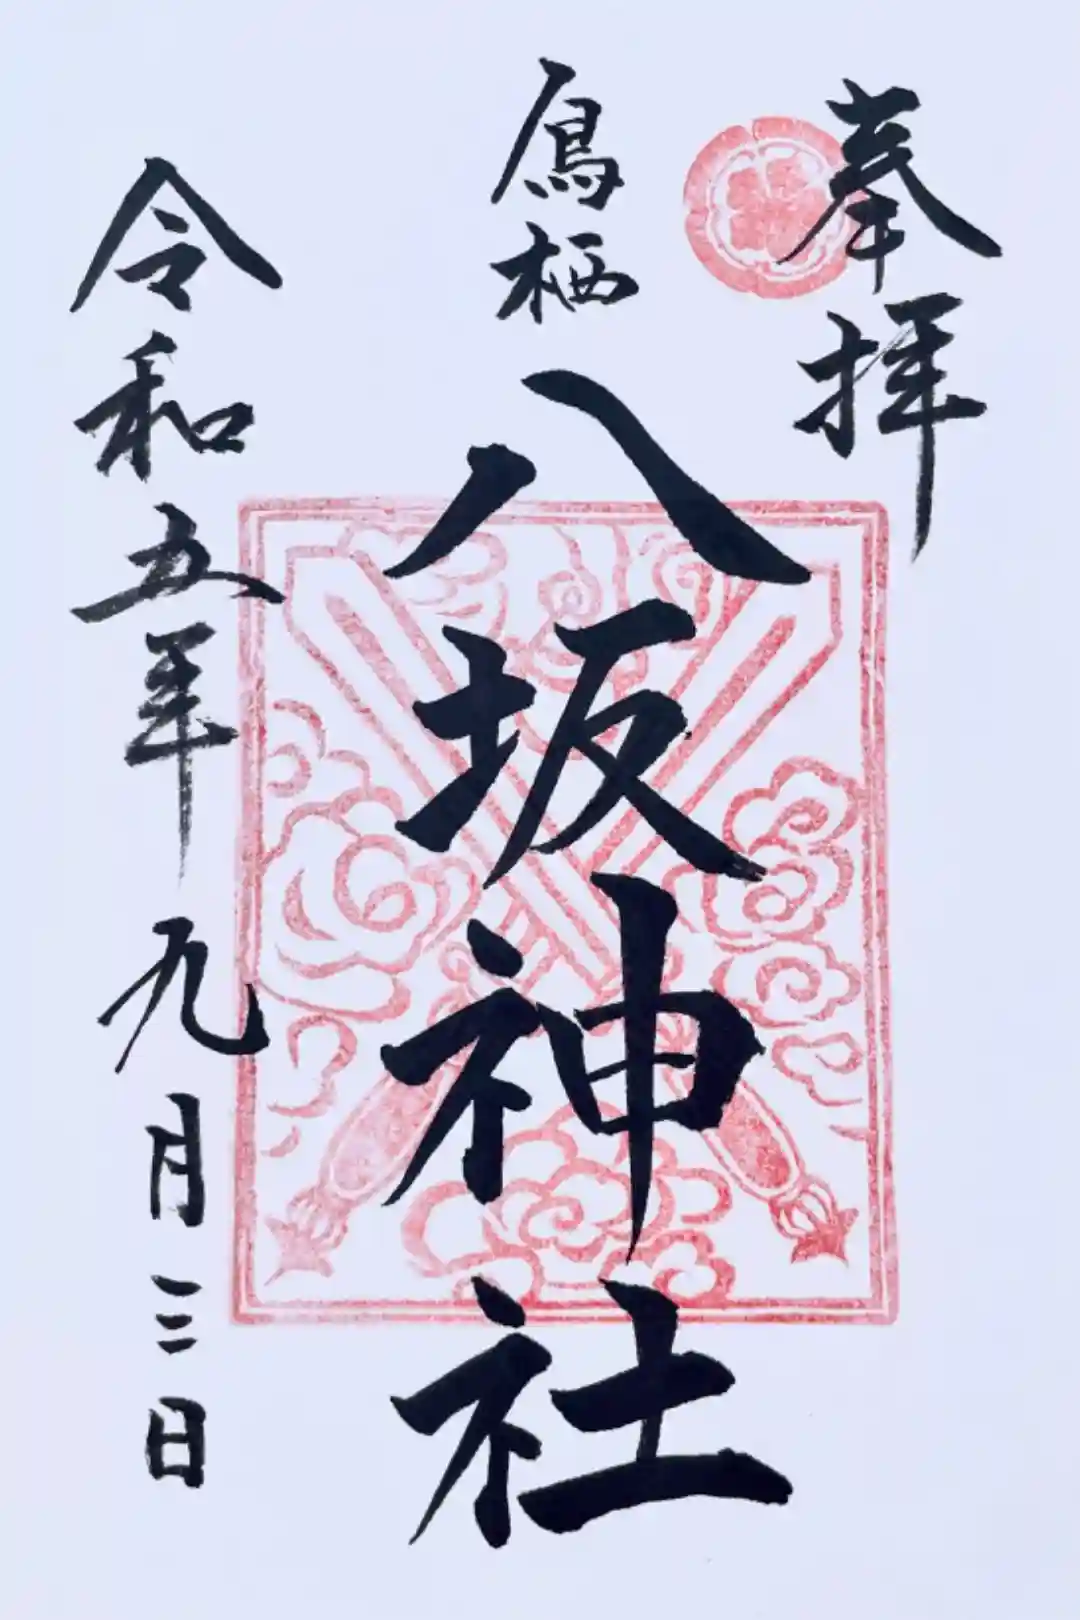 奉拝
鳥栖
八坂神社
令和五年九月三日